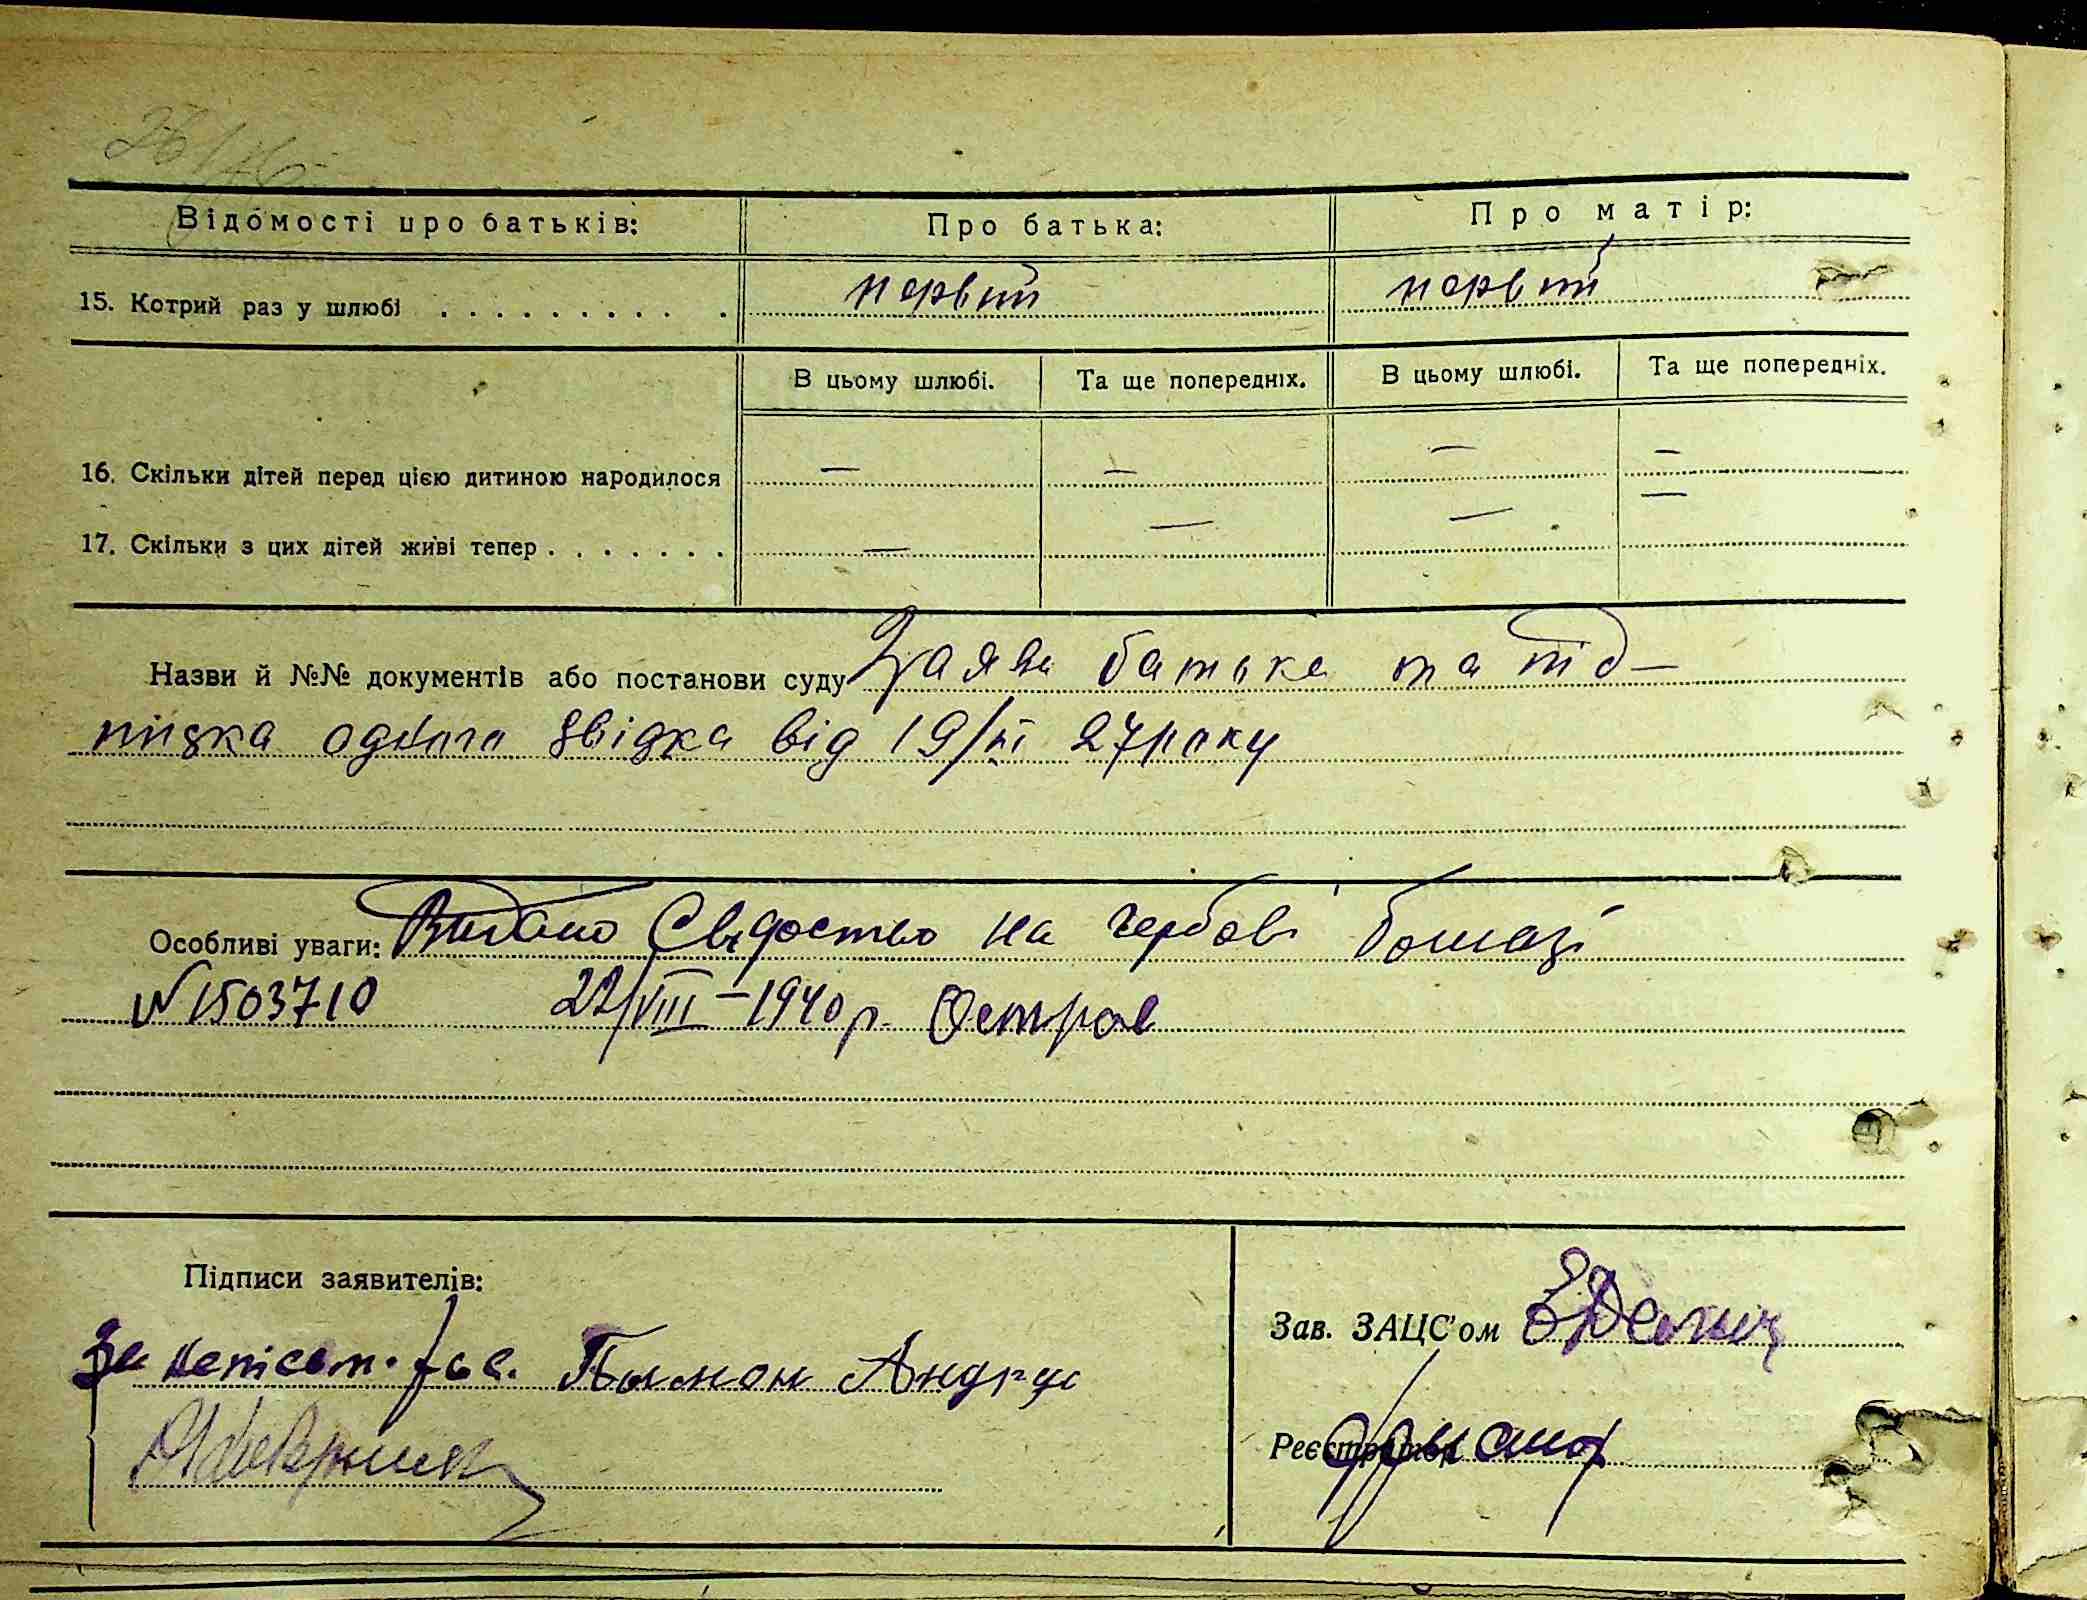 Відомості про батьків: Про батька: Про матір:
15. Котрий раз у шлюбі . . . . . . . . . . первий первий
В цьому шлюбі. Та ще попередніх. В цьому шлюбі. Та ще попередніх.
16. Скільки дітей перед цією дитиною народилося — — — —
17. Скільки з цих дітей живі тепер . . . . . . . — — — —
Назви й №№ документів або постанови суду Заява батька та під-
писка одного свідка від 19/ІІІ 27 року
Особливі уваги: Видано Свідоство на гербові бомазі
№ 1503710 22/VIII – 1940 р.
Підписи заявителів:
За неписьм.
Зав. ЗАЦС'ом
Реєстратор